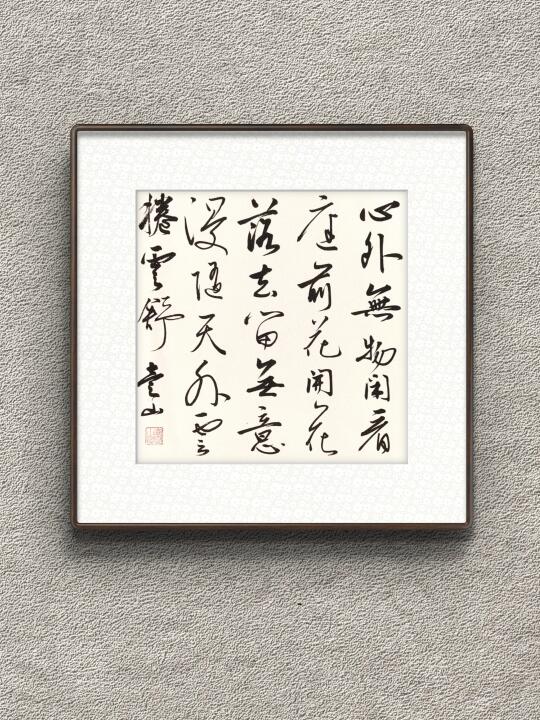 心外無物閑看
庭前花開花
落去留無意
漫隨天外雲
捲雲舒
山